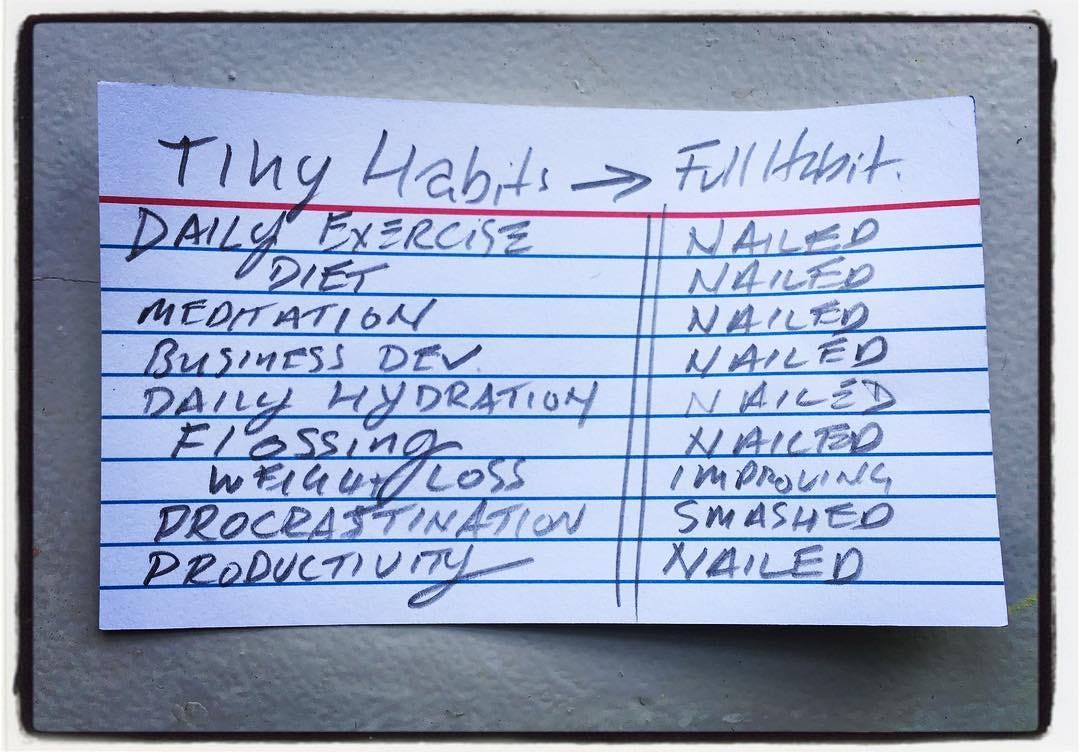 Tiny Habits → Full Habit.
DAILY EXERCISE NAILED
DIET NAILED
MEDITATION NAILED
BUSINESS DEV. NAILED
DAILY HYDRATION NAILED
Flossing NAILED
WEIGHT LOSS IMPROVING
PROCRASTINATION SMASHED
PRODUCTIVITY NAILED